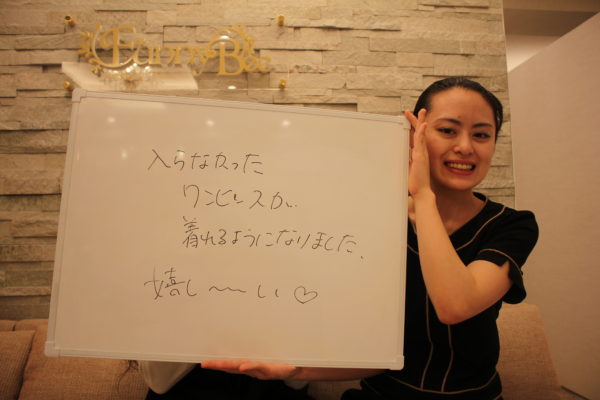 FunnyBee
入らなかった
ワンピースが
着れるようになりました。
嬉し〜い♡